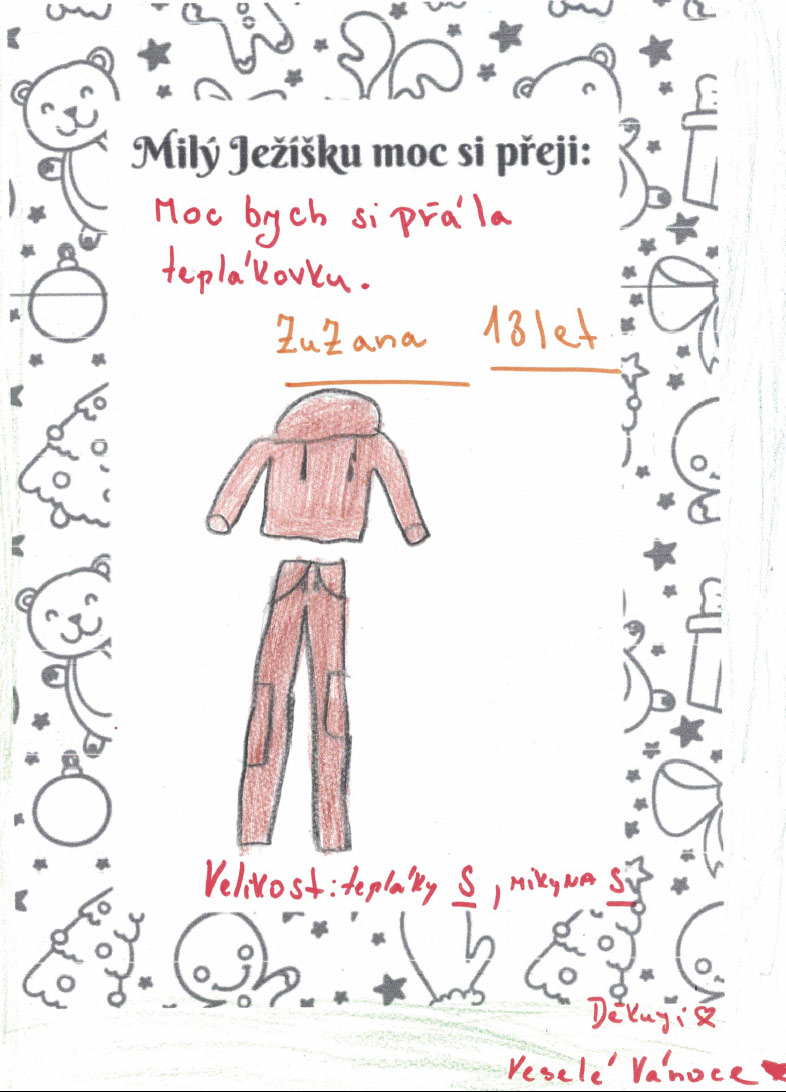 Milý Ježíšku moc si přeji:
Moc bych si přála
teplákovku.
ZuZana 13let
Velikost: tepláky S, mikyna S
Děkuyi
Veselé Vánoce